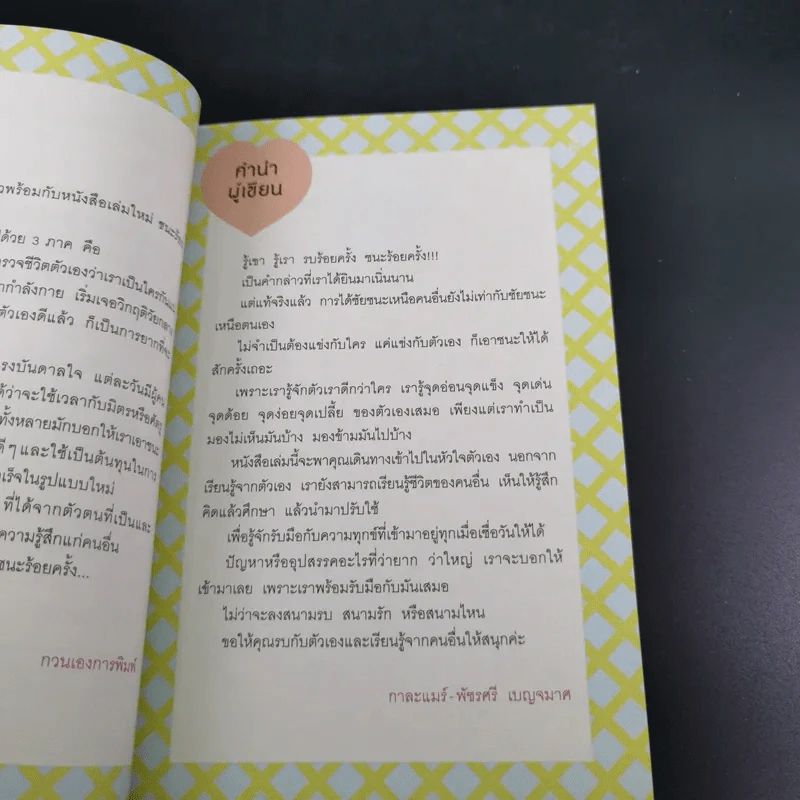 วพร้อมกับหนังสือเล่มใหม่ ชนะร้อย
ด้วย 3 ภาค คือ
รวจชีวิตตัวเองว่าเราเป็นใครกัน
ากำลังกาย เริ่มเจอวิกฤติวัยกลาง
ตัวเองดีแล้ว ก็เป็นการยากที่จะ
รงบันดาลใจ แต่ละวันมีผู้คน
ด้ว่าจะใช้เวลากับมิตรหรือศัตรู
ทั้งหลายมักบอกให้เราเอาชนะ
ดีๆ และใช้เป็นต้นทุนในการ
เร็จในรูปแบบใหม่
ที่ได้จากตัวตนที่เป็นและ
ความรู้สึกแก่คนอื่น
ชนะร้อยครั้ง...
กวนเองการพิมพ์
คำนำ
ผู้เขียน
รู้เขา รู้เรา รบร้อยครั้ง ชนะร้อยครั้ง!!!
เป็นคำกล่าวที่เราได้ยินมาเนิ่นนาน
แต่แท้จริงแล้ว การได้ชัยชนะเหนือคนอื่นยังไม่เท่ากับชัยชนะ
เหนือตนเอง
ไม่จำเป็นต้องแข่งกับใคร แค่แข่งกับตัวเอง ก็เอาชนะให้ได้
สักครั้งเถอะ
เพราะเรารู้จักตัวเราดีกว่าใคร เรารู้จุดอ่อนจุดแข็ง จุดเด่น
จุดด้อย จุดง่อยจุดเปลี้ย ของตัวเองเสมอ เพียงแต่เราทำเป็น
มองไม่เห็นมันบ้าง มองข้ามมันไปบ้าง
หนังสือเล่มนี้จะพาคุณเดินทางเข้าไปในหัวใจตัวเอง นอกจาก
เรียนรู้จากตัวเอง เรายังสามารถเรียนรู้ชีวิตของคนอื่น เห็นให้รู้สึก
คิดแล้วศึกษา แล้วนำมาปรับใช้
เพื่อรู้จักรับมือกับความทุกข์ที่เข้ามาอยู่ทุกเมื่อเชื่อวันให้ได้
ปัญหาหรืออุปสรรคอะไรที่ว่ายาก ว่าใหญ่ เราจะบอกให้
เข้ามาเลย เพราะเราพร้อมรับมือกับมันเสมอ
ไม่ว่าจะลงสนามรบ สนามรัก หรือสนามไหน
ขอให้คุณรบกับตัวเองและเรียนรู้จากคนอื่นให้สนุกค่ะ
กาละแมร์-พัชรศรี เบญจมาศ